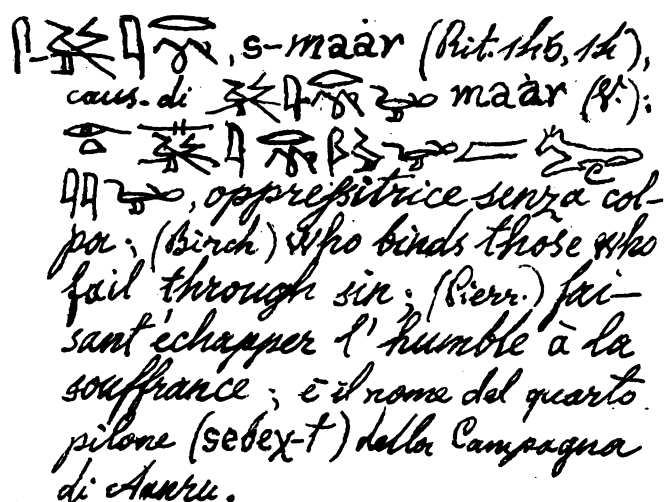 , s-maȧr (Rit. 145, 14),
caus. di maȧr (V.):
, oppressitrice senza col-
pa; (Birch) who binds those who
fail through sin; (Pierr.) fai-
sant échapper l'humble à la
souffrance; è il nome del quarto
pilone (sebeχ-t) della Campagna
di Aanru.